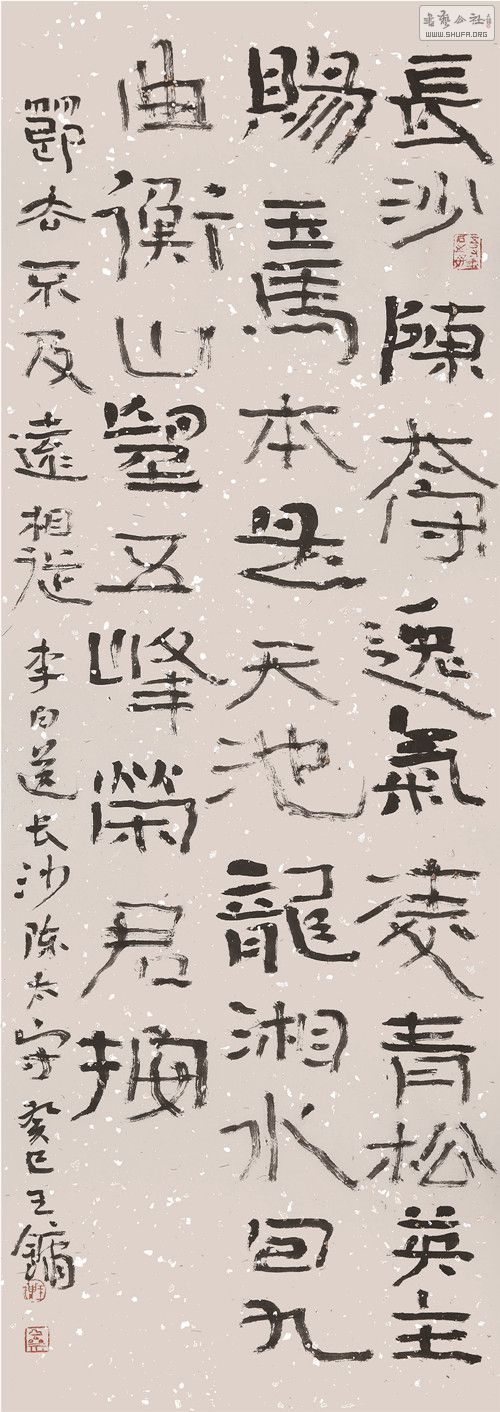 書藝公社
WWW.SHUFA.ORG
長沙陳太守逸氣凌青松英主
賜玉馬本是天池龍湘水回九
曲衡山望五峰榮君按
節去不及遠相從 李白送长沙陈太守 癸巳王镛